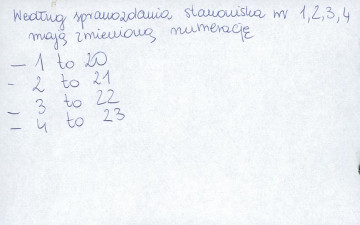 Według sprawozdania stanowiska nr 1,2,3,4
mają zmienioną numerację
- 1 to 20
- 2 to 21
- 3 to 22
- 4 to 23